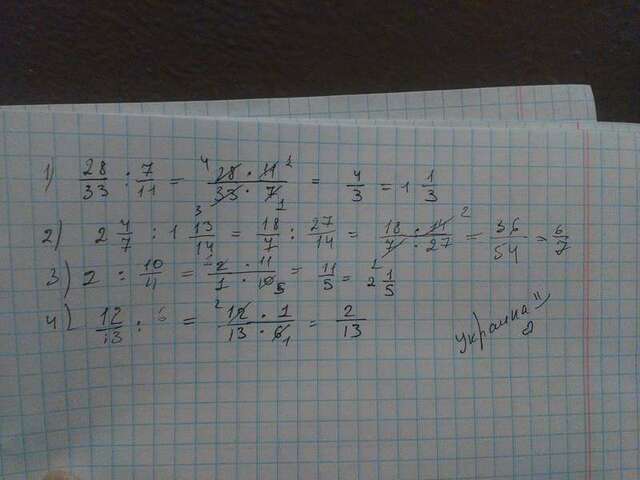 1) 28/33 : 7/11 = 28 · 11/33 · 7 = 4/3 = 1 1/3
2) 2 4/7 : 1 13/14 = 18/7 : 27/14 = 18 · 14/7 · 27 = 36/54 = 6/7
3) 2 : 10/4 = 2 · 11/1 · 10 = 11/5 = 2 1/5
4) 12/13 : 6 = 12 · 1/13 · 6 = 2/13
украинка